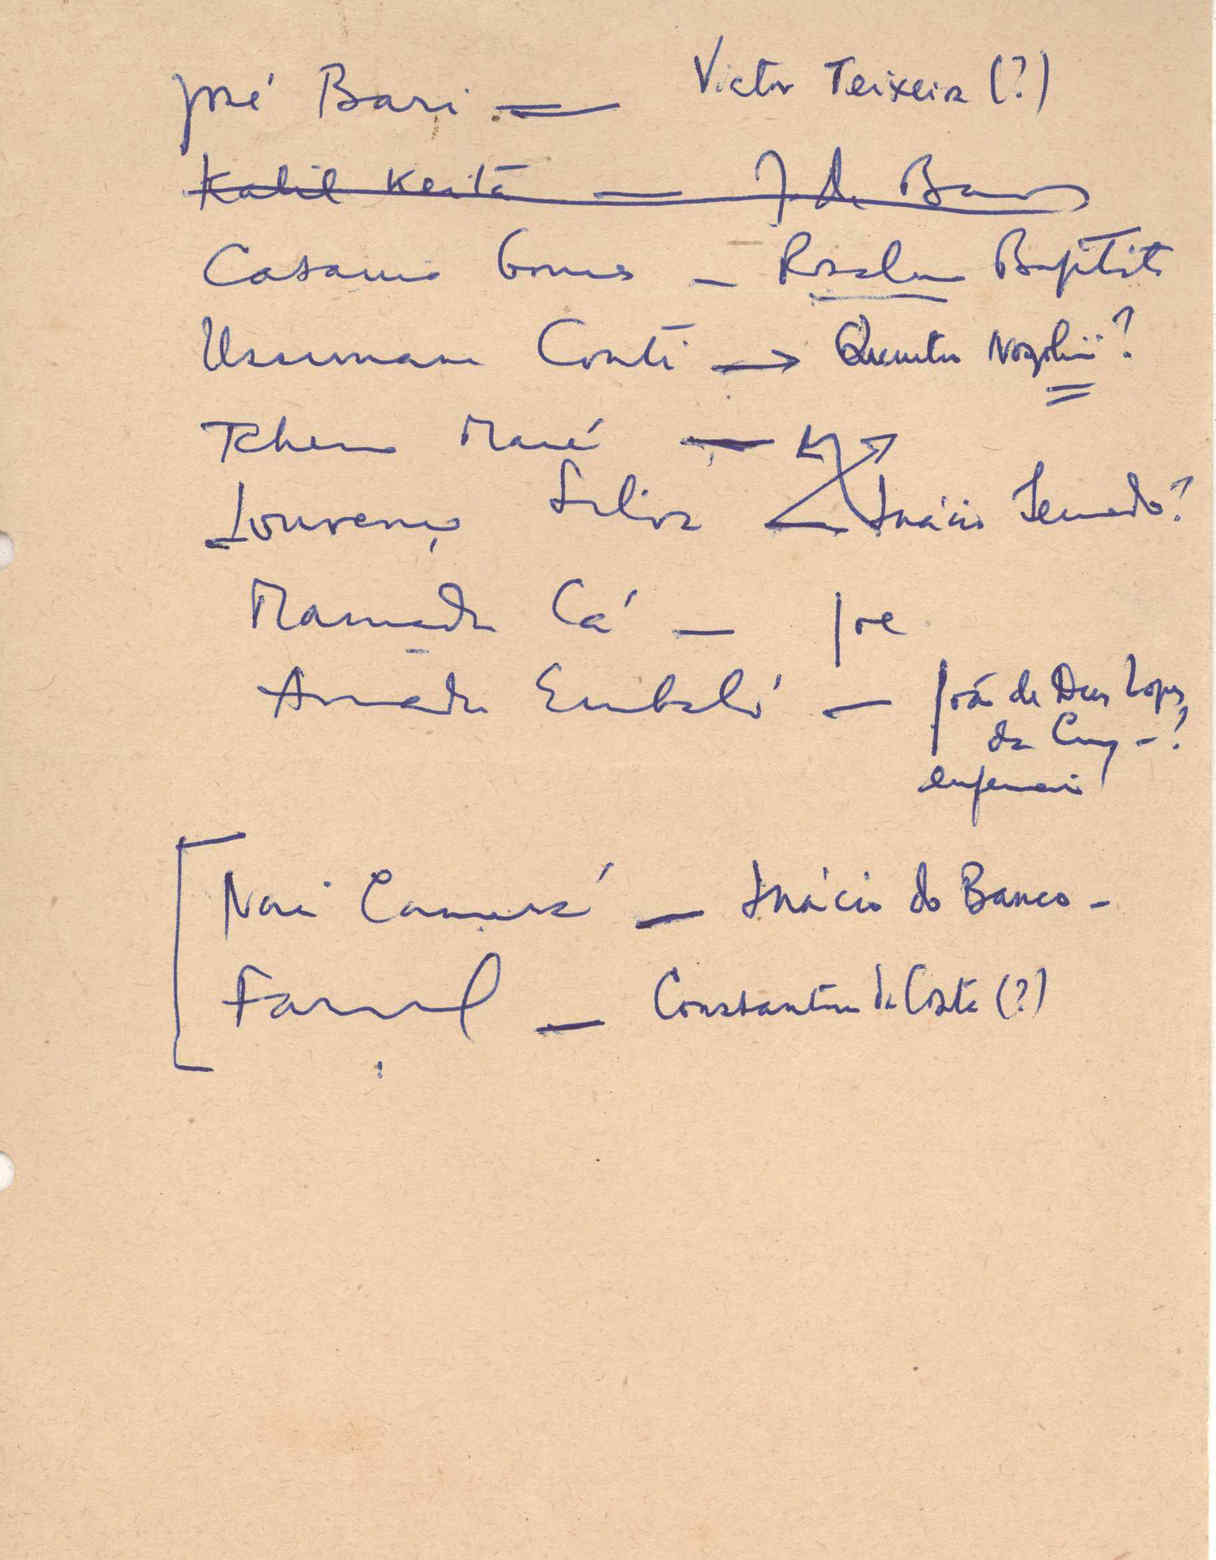 José Bari — Victor Teixeira (?)
Kalil Keita — J. de Barros
Casamo Gomes — Baptista
Ussumane Conté → Quintino Nozolini?
Tcherno Mané —
Lourenço Silva — Inácio Semedo?
Mamadu Cá — Joe
Amadu Embaló — João de Deus Lopes
da Cruz - ?
enfermeiro
Nari Camará — Inácio do Banco -
Constantino da Costa (?)